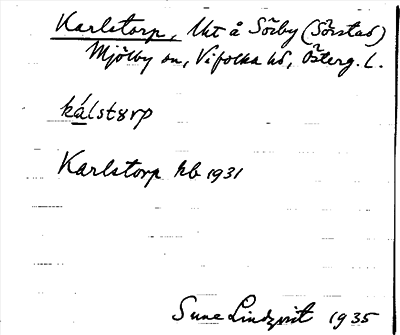 Karlstorp, Uht å Sörby (Sörstad)
Mjölby sn, Vifolka hd, Österg. L.
kálstɤrp
Karlstorp kb 1931
Sune Lindqvist 1935